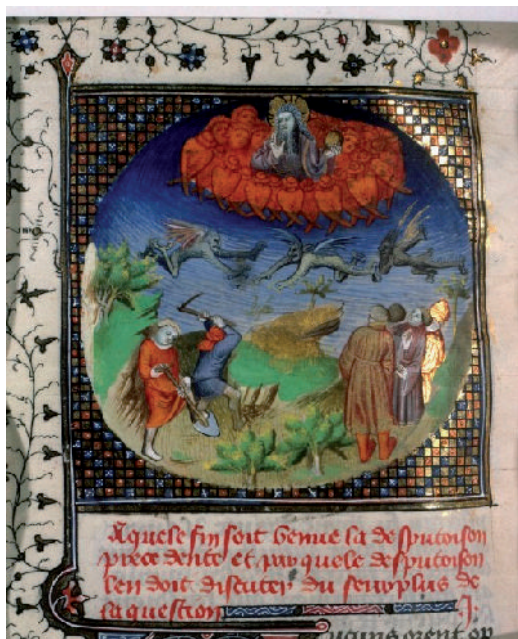 A quele fin soit venue la desputoison
precedente et par quele desputoison
len doit discuter du seurplus de
la question J.